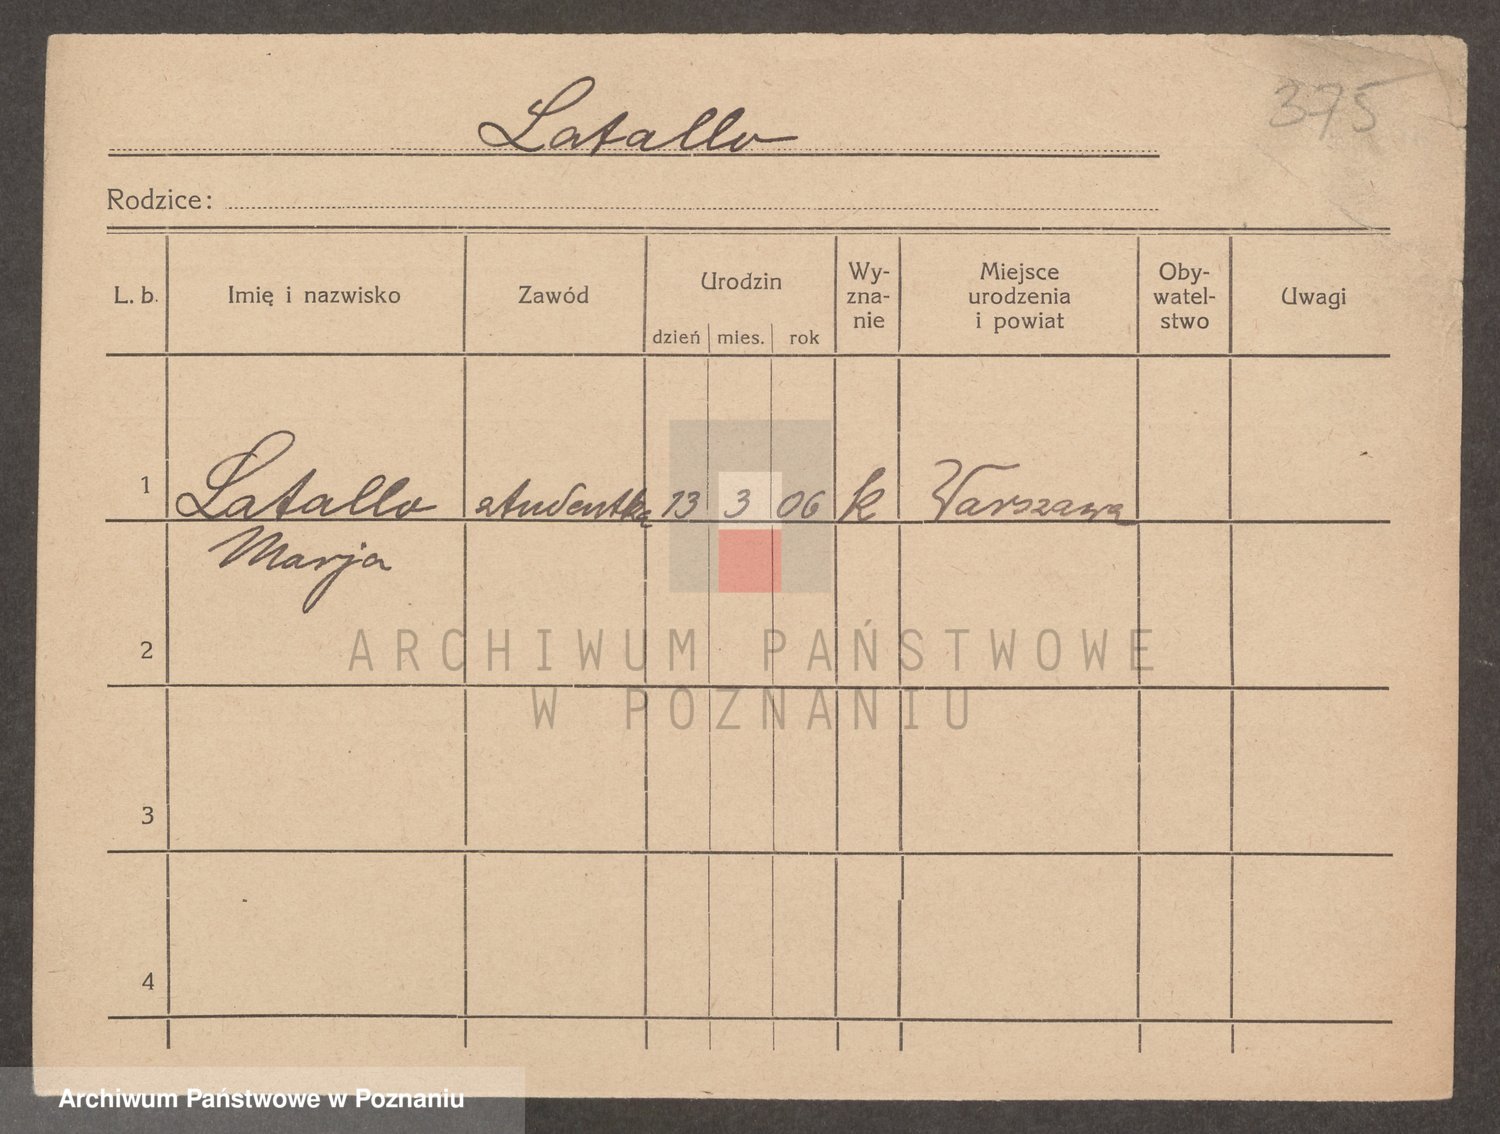 375
Latallo
Rodzice:
L. b. Imię i nazwisko Zawód Urodzin dzień mies. rok Wy-zna-nie Miejsce urodzenia i powiat Oby-watel-stwo Uwagi
1 Latallo studentka 13 3 06 k Warszawa
Marja
2
ARCHIWUM PAŃSTWOWE
W POZNANIU
3
4
Archiwum Państwowe w Poznaniu